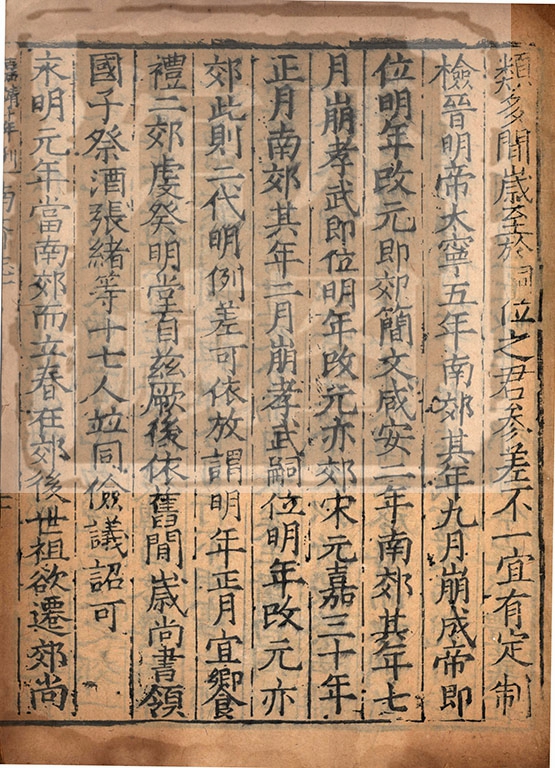 類多間歲至於嗣位之君參差不一宜有定制
檢晉明帝大寧五年南郊其年九月崩成帝即
位明年改元即郊簡文咸安二年南郊其年七
月崩孝武即位明年改元亦郊宋元嘉三十年
正月南郊其年二月崩孝武嗣位明年改元亦
郊此則二代明例差可依放謂明年正月宜饗
禮二郊虔癸明堂自茲厥後依舊間歲尚書領
國子祭酒張緒等十七人並同儉議詔可
永明元年當南郊而立春在郊後世祖欲遷郊尚